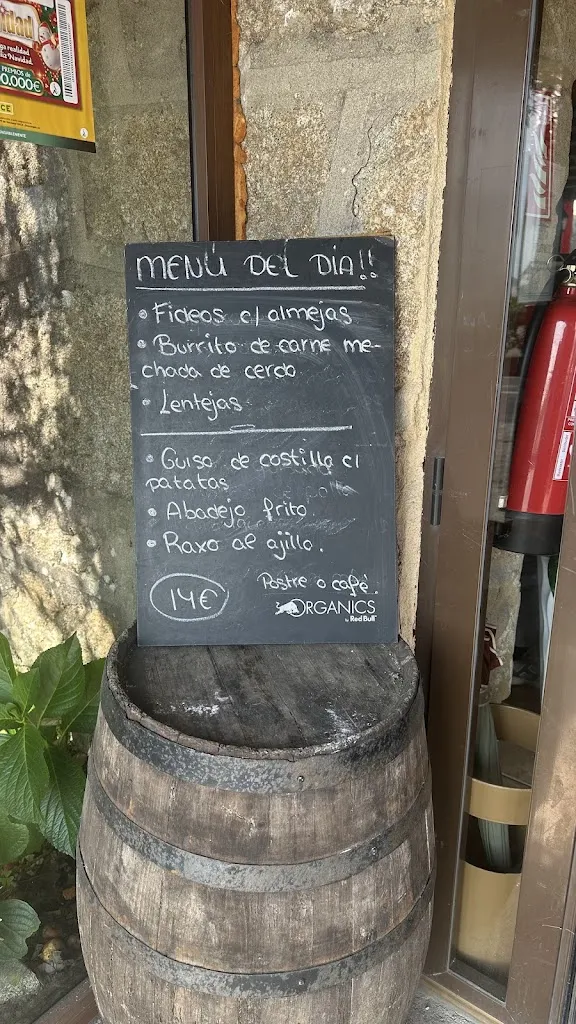 idad
ga realidad
liz Navidad.
PREMIOS de
0.000€
CE
MENÚ DEL DÍA!!
• Fideos c/ almejas
• Burrito de carne me-
chada de cerdo
• Lentejas
• Guiso de costilla c/
patatas
• Abadejo frito.
• Raxo al ajillo.
Postre o café.
14€
ORGANICS
by Red Bull